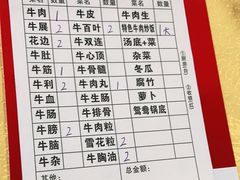 菜名 数量 菜名 数量 菜名 数量
牛肉 1 牛皮 牛肉生
牛展 2 牛百叶 2 特色牛肉炒饭 大
花边 2 牛双连 汤底+菜
牛肚 牛心顶 杂菜
牛筋 1 牛骨髓 冬瓜
牛利 2 牛肉丸 1 腐竹
牛肠 牛舌 萝卜
牛膀 2 牛肉粒 鸳鸯锅底
牛脑 雪花粒 2
牛杂 牛胸油 2
其他： 总金额：